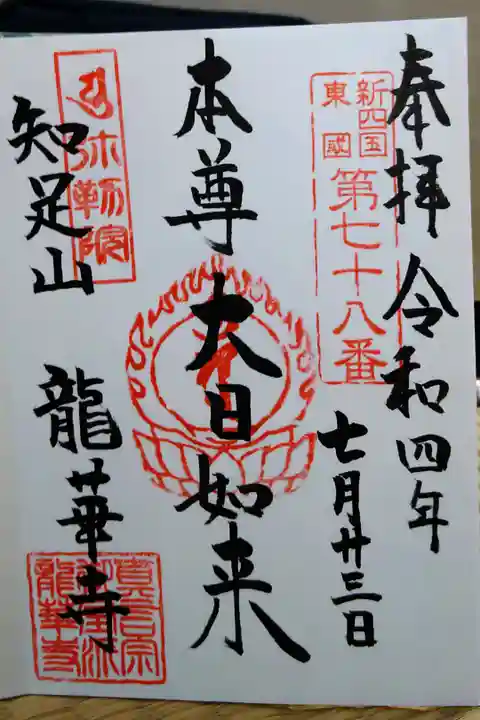 奉拝 令和四年
七月廿三日
新四国
東国
第七十八番
本尊 大日如来
弥勒院
知足山 龍華寺
真言宗
御室派
龍華寺